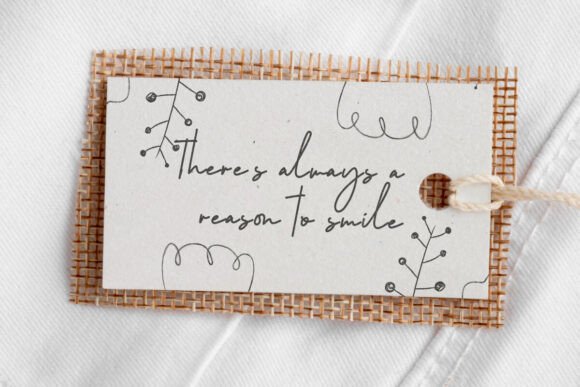 There's always a
reason to smile